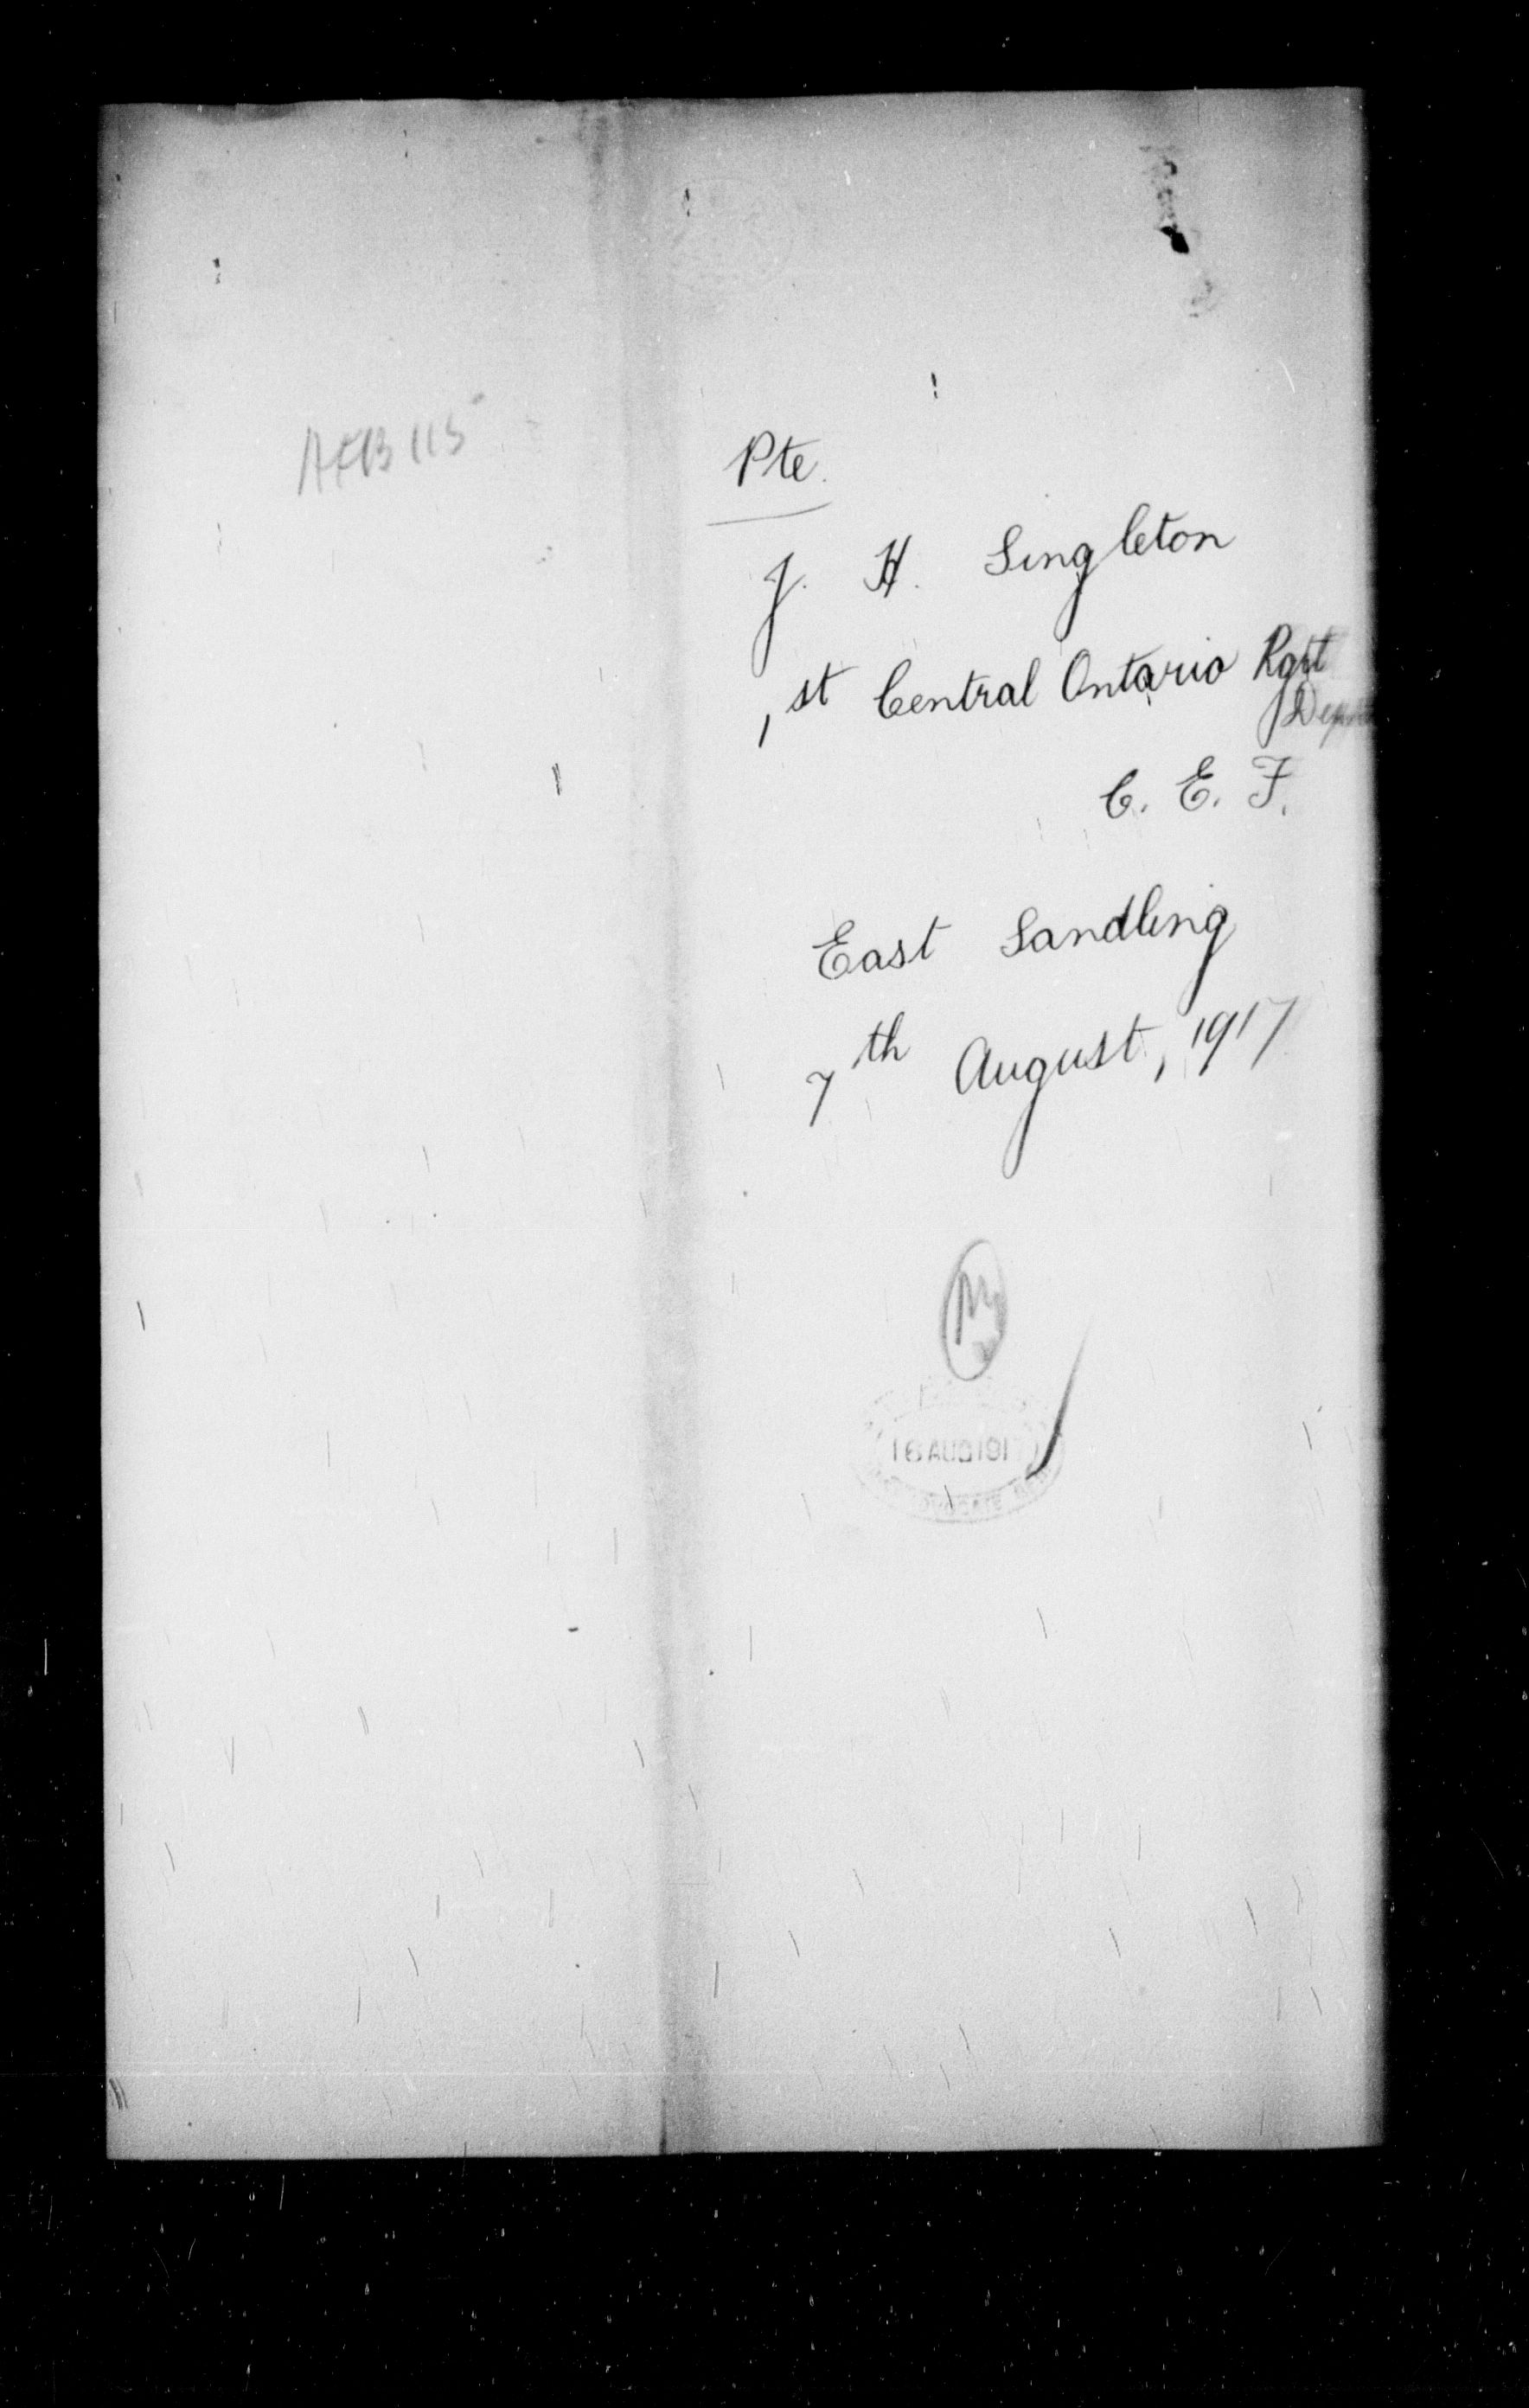 AFB 115
Pte.
J. H. Singleton
1st Central Ontario Rgt
C. E. F.
East Sandling
7th August, 1917
16 AUG 191
ADVOCATE